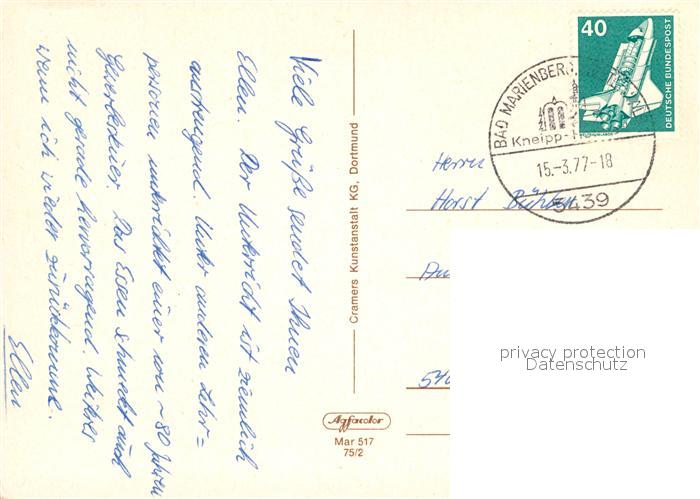 Viele Grüße sendet Ihnen
Ellen. Der Unterricht ist ziemlich
anstrengend. Unter anderen Lehr=
personen unterrichtet einer von ~80 Jahren
Das Essen schmeckt auch
nicht gerade hervorragend. Weiteres
wenn ich wieder zurückkomme.
Ellen
Cramers Kunstanstalt KG, Dortmund
Agfacolor
Mar 517
75/2
40
DEUTSCHE BUNDESPOST
BAD MARIENBERG
Kneipp-
15.-3.77-18
5439
Herrn
Horst
privacy protection
Datenschutz